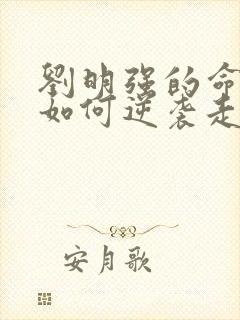 劉明强的命
如何逆袭走
安月歌